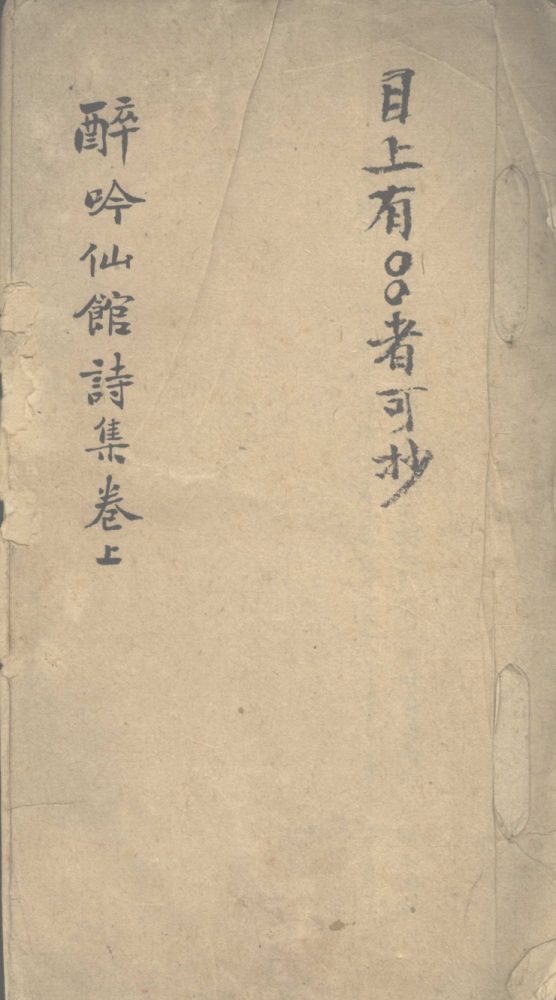 目上有○○者可抄
醉吟仙館詩集卷上